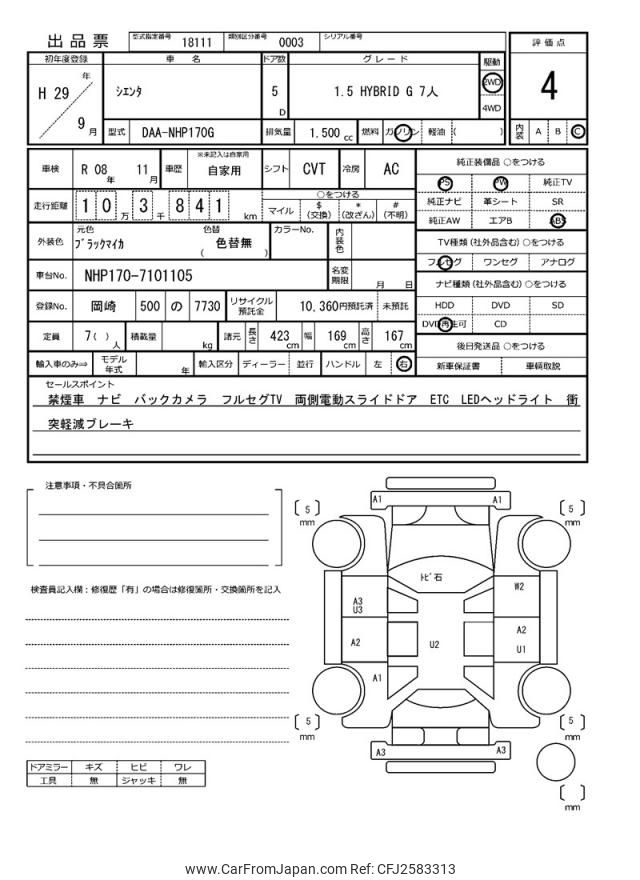 出品票 型式指定番号 18111 類別区分番号 0003 シリアル番号
評価点
4
内装 A B C
初年度登録 車名 ドア数 グレード 駆動
H 29 年 9 月 シエンタ 5 D 1.5 HYBRID G 7人 2WD
4WD
型式 DAA-NHP170G 排気量 1.500 cc 燃料 ガソリン 軽油 ( )
車検 R 08 年 11 月 車歴 ※未記入は自家用 自家用 シフト CVT 冷房 AC
走行距離 1 0 万 3 千 8 4 1 km ○をつける
マイル $ (交換) * (改ざん) # (不明)
外装色 元色 ブラックマイカ 色替 ( 色替無 ) カラーNo. 内装色
車台No. NHP170-7101105 名変期限 月 日
登録No. 岡崎 500 の 7730 リサイクル預託金 10,360円預託済 未預託
定員 7 ( ) 人 積載量 kg 諸元 長さ 423 cm 幅 169 cm 高さ 167 cm
輸入車のみ⇒ モデル年式 年 輸入区分 ディーラー 並行 ハンドル 左 右
純正装備品 ○をつける
PS PW 純正TV
純正ナビ 革シート SR
純正AW エアB ABS
TV種類 (社外品含む) ○をつける
フルセグ ワンセグ アナログ
ナビ種類 (社外品含む) ○をつける
HDD DVD SD
DVD再生可 CD
後日発送品 ○をつける
新車保証書 車輌取説
セールスポイント
禁煙車 ナビ バックカメラ フルセグTV 両側電動スライドドア ETC LEDヘッドライト 衝
突軽減ブレーキ
注意事項・不具合箇所
検査員記入欄：修復歴「有」の場合は修復箇所・交換箇所を記入
ドアミラー キズ ヒビ ワレ
工具 無 ジャッキ 無
A1 A1
[ 5 ] mm [ 5 ] mm
トビ石
A3
U3
W2
A2 U2 A2
U1
A1
[ 5 ] mm [ 5 ] mm
A3 A3
[ ] mm
www.CarFromJapan.com Ref: CFJ2583313